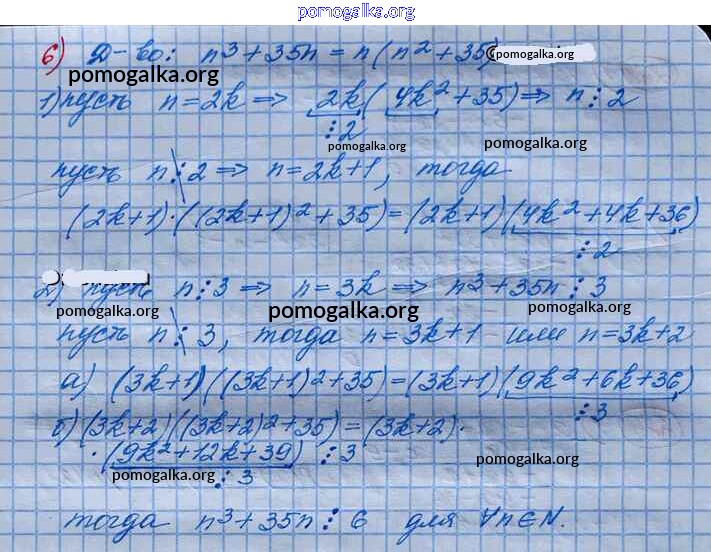 pomogalka.org
6) Д-во: n³+35n = n(n²+35)
pomogalka.org
pomogalka.org
1) пусть n=2k ⇒ 2k(4k²+35) ⇒ n⋮2
⋮2
pomogalka.org
pomogalka.org
пусть n⋮̸2 ⇒ n=2k+1, тогда
(2k+1)·((2k+1)²+35) = (2k+1)(4k²+4k+36)
⋮2
2) пусть n⋮3 ⇒ n=3k ⇒ n³+35n⋮3
pomogalka.org
pomogalka.org
pomogalka.org
пусть n⋮̸3, тогда n=3k+1 или n=3k+2
а) (3k+1)((3k+1)²+35) = (3k+1)(9k²+6k+36)
⋮3
б) (3k+2)((3k+2)²+35) = (3k+2)·
·(9k²+12k+39) ⋮3
pomogalka.org
pomogalka.org
⋮3
тогда n³+35n⋮6 для ∀n∈N.